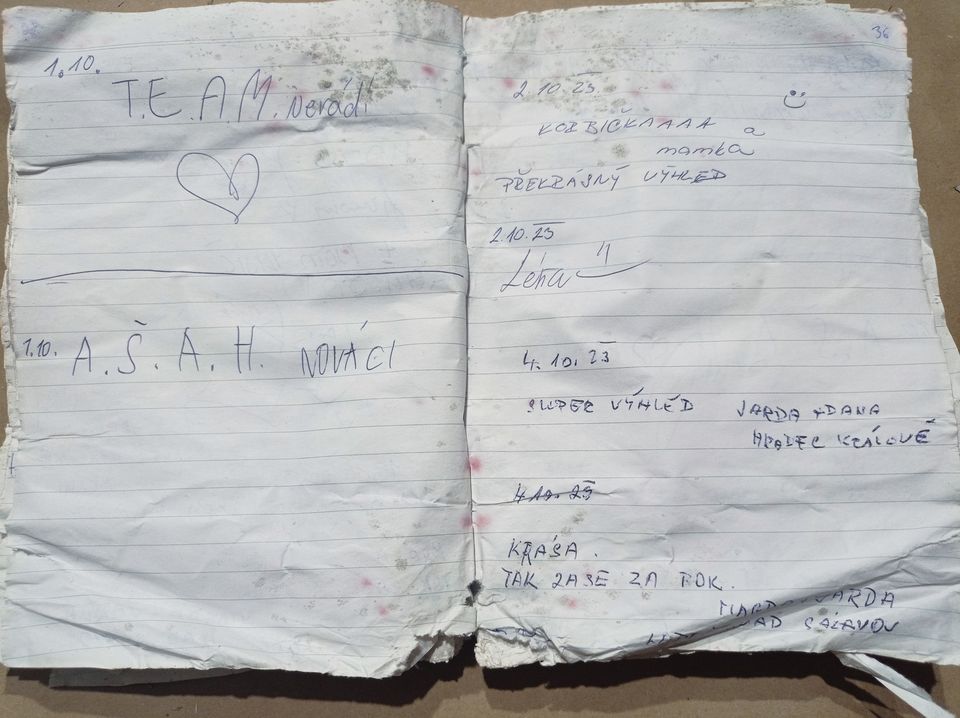 1.10.
T.E.A.M. Nerádi
1.10. A.Š.A.H. NOVÁCI
36
2.10.23
KOBBIČKAAAA a
mamka
PŘEKRÁSNÝ VÝHLED
2.10.23
4.10.23
SUPER VÝHLÉD JARDA + DANA
HRADEC KRÁLOVÉ
4.10.23
KRÁSA.
TAK ZASE ZA ROK.
JARDA
NAD SÁZAVOU